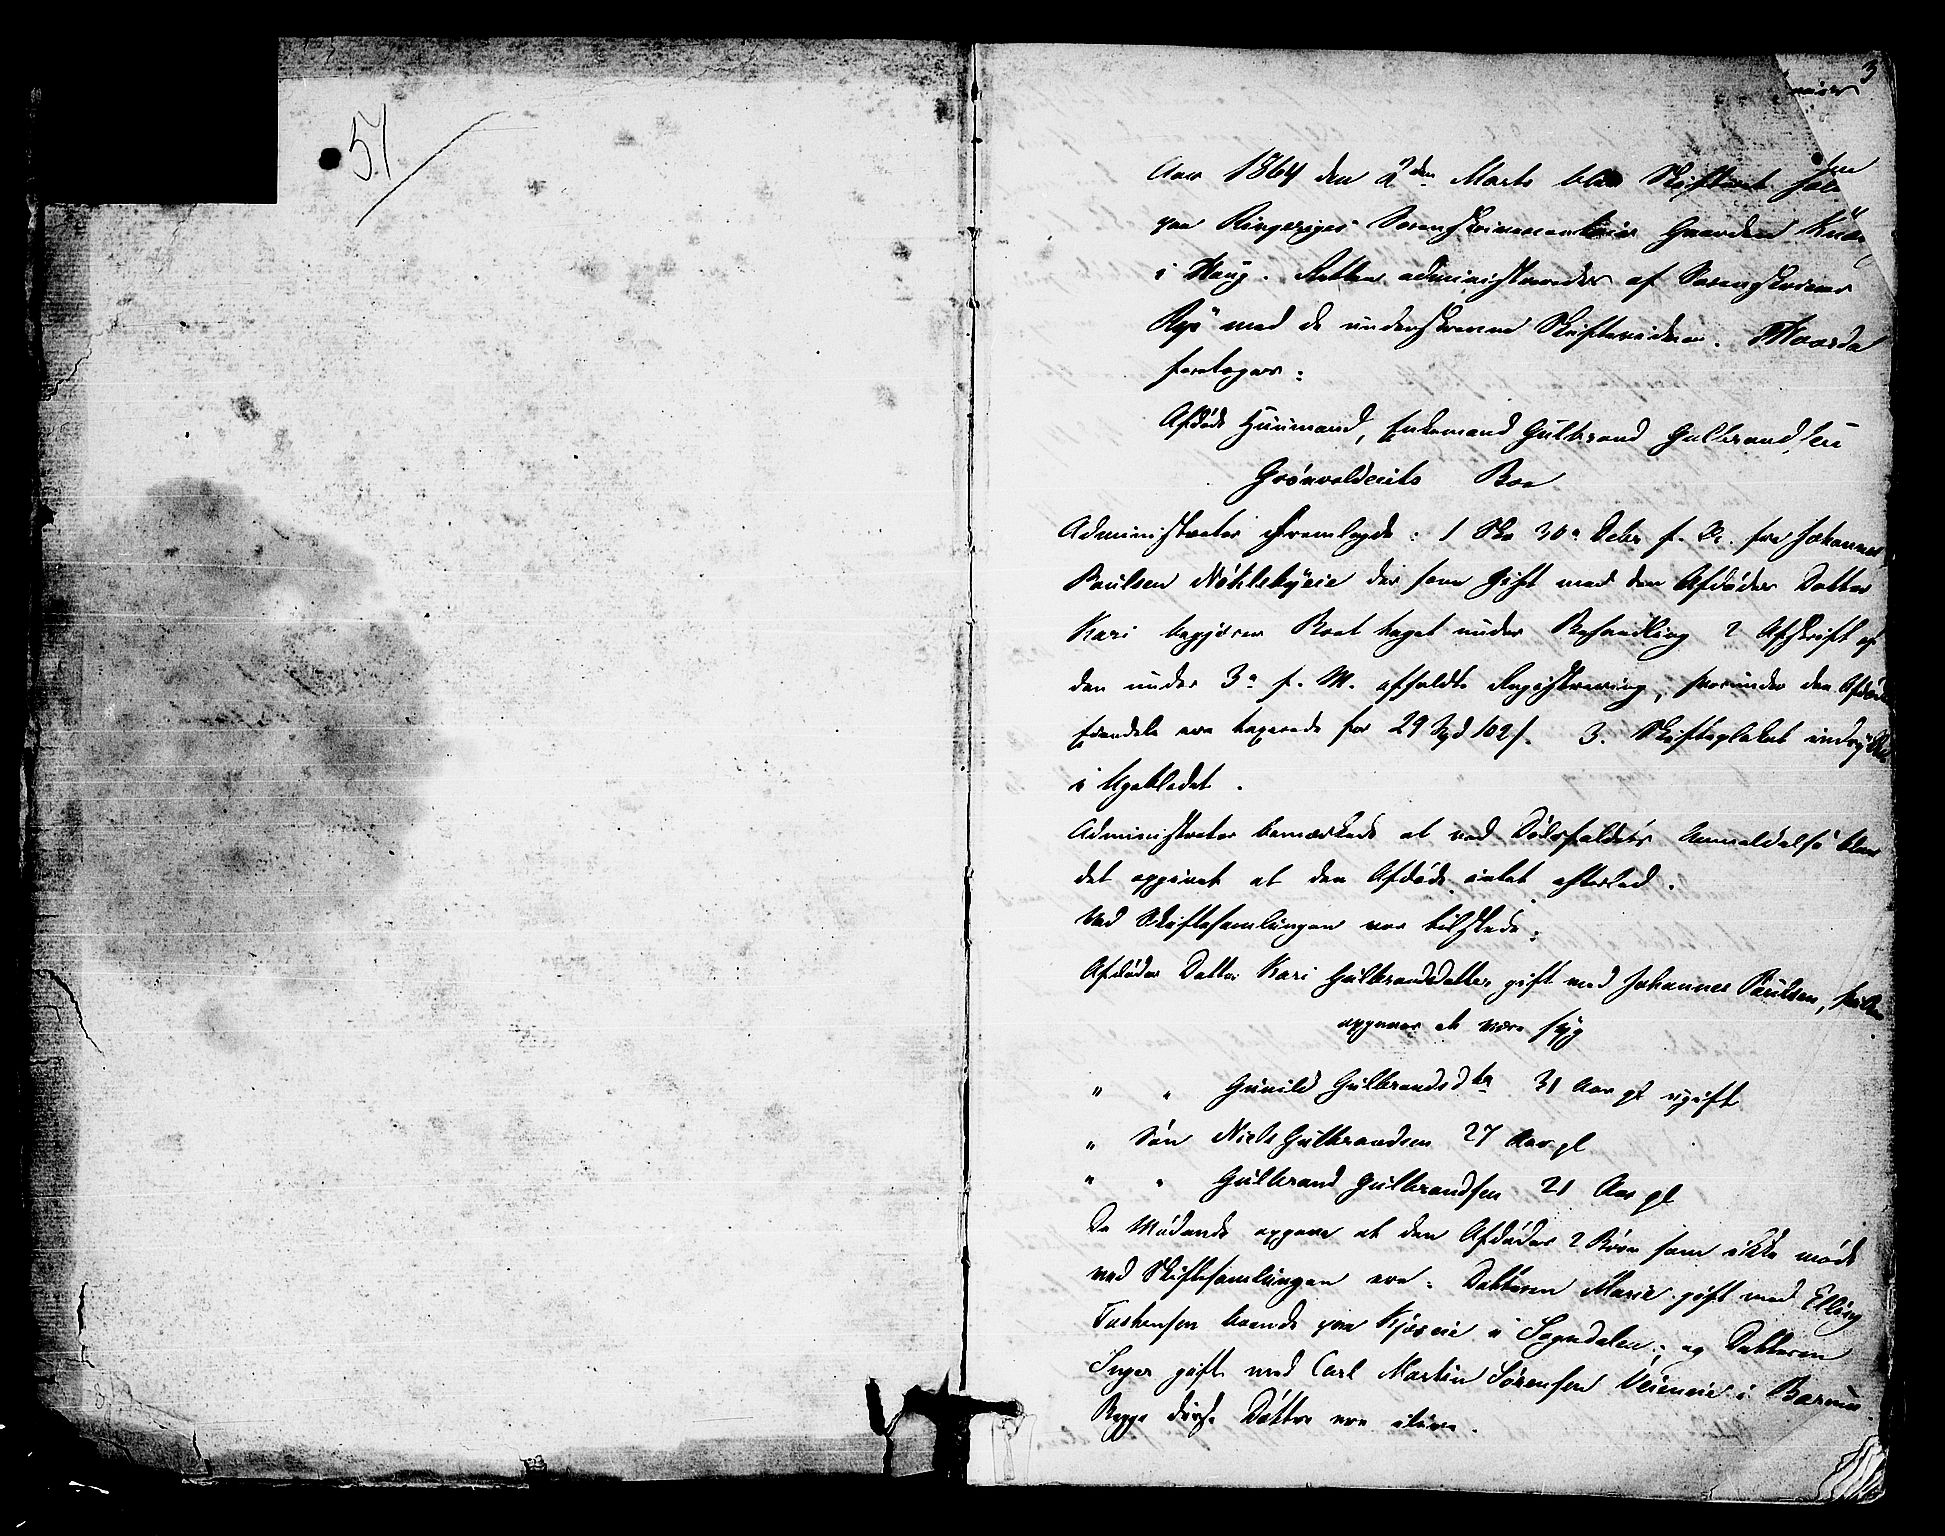 57
3
Aar 1864 den 2den Marts blev Skifteret
paa Ringeriges Sorenskriverembeds Gaarden
i Haug. Retten administreredes af Sorenskriver
Rye med de underskrevne Skiftevidner. Hvorda
foretoges:
Afdøde Huusmand, Enkemand Gulbrand Gulbrandsen
Grønvoldeiets Bo
Administrator fremlagde: 1 Skr 30te Debr f. A. fra Johannes
Paulsen der som gift med den Afdødes Datter
Kari begjærer Boet taget under Behandling 2 Afskrift af
den under 3de f. M. afholdte Registrering, hvorunder den Afdødes
Eiendele ere taxerede for 29 Spd 102 s. 3. Skifteplakat indrykket
i Ugebladet.
Administrator bemærkede at ved Dødsfaldets Anmeldelse blev
det opgivet at den Afdøde intet efterlod.
Ved Skiftesamlingen var tilstede:
Afdødes Datter Kari Gulbrandsdatter gift med Johannes Paulsen, hvilken
opgaves at være syg
" " Gunild Gulbrandsdtr 31 Aar gl ugift
" Søn Niels Gulbrandsen 27 Aar gl
" " Gulbrand Gulbrandsen 21 Aar gl
De Mødende opgave at den Afdødes 2 Børn som ikke mødte
ved Skiftesamlingen ere: Datteren Marie gift med Elling
Torstensen boende paa i Sognedalen; og Datteren
Inger gift med Carl Martin Sørensen Veieneie i Bærum.
Begge disse Døttre ere ilive.